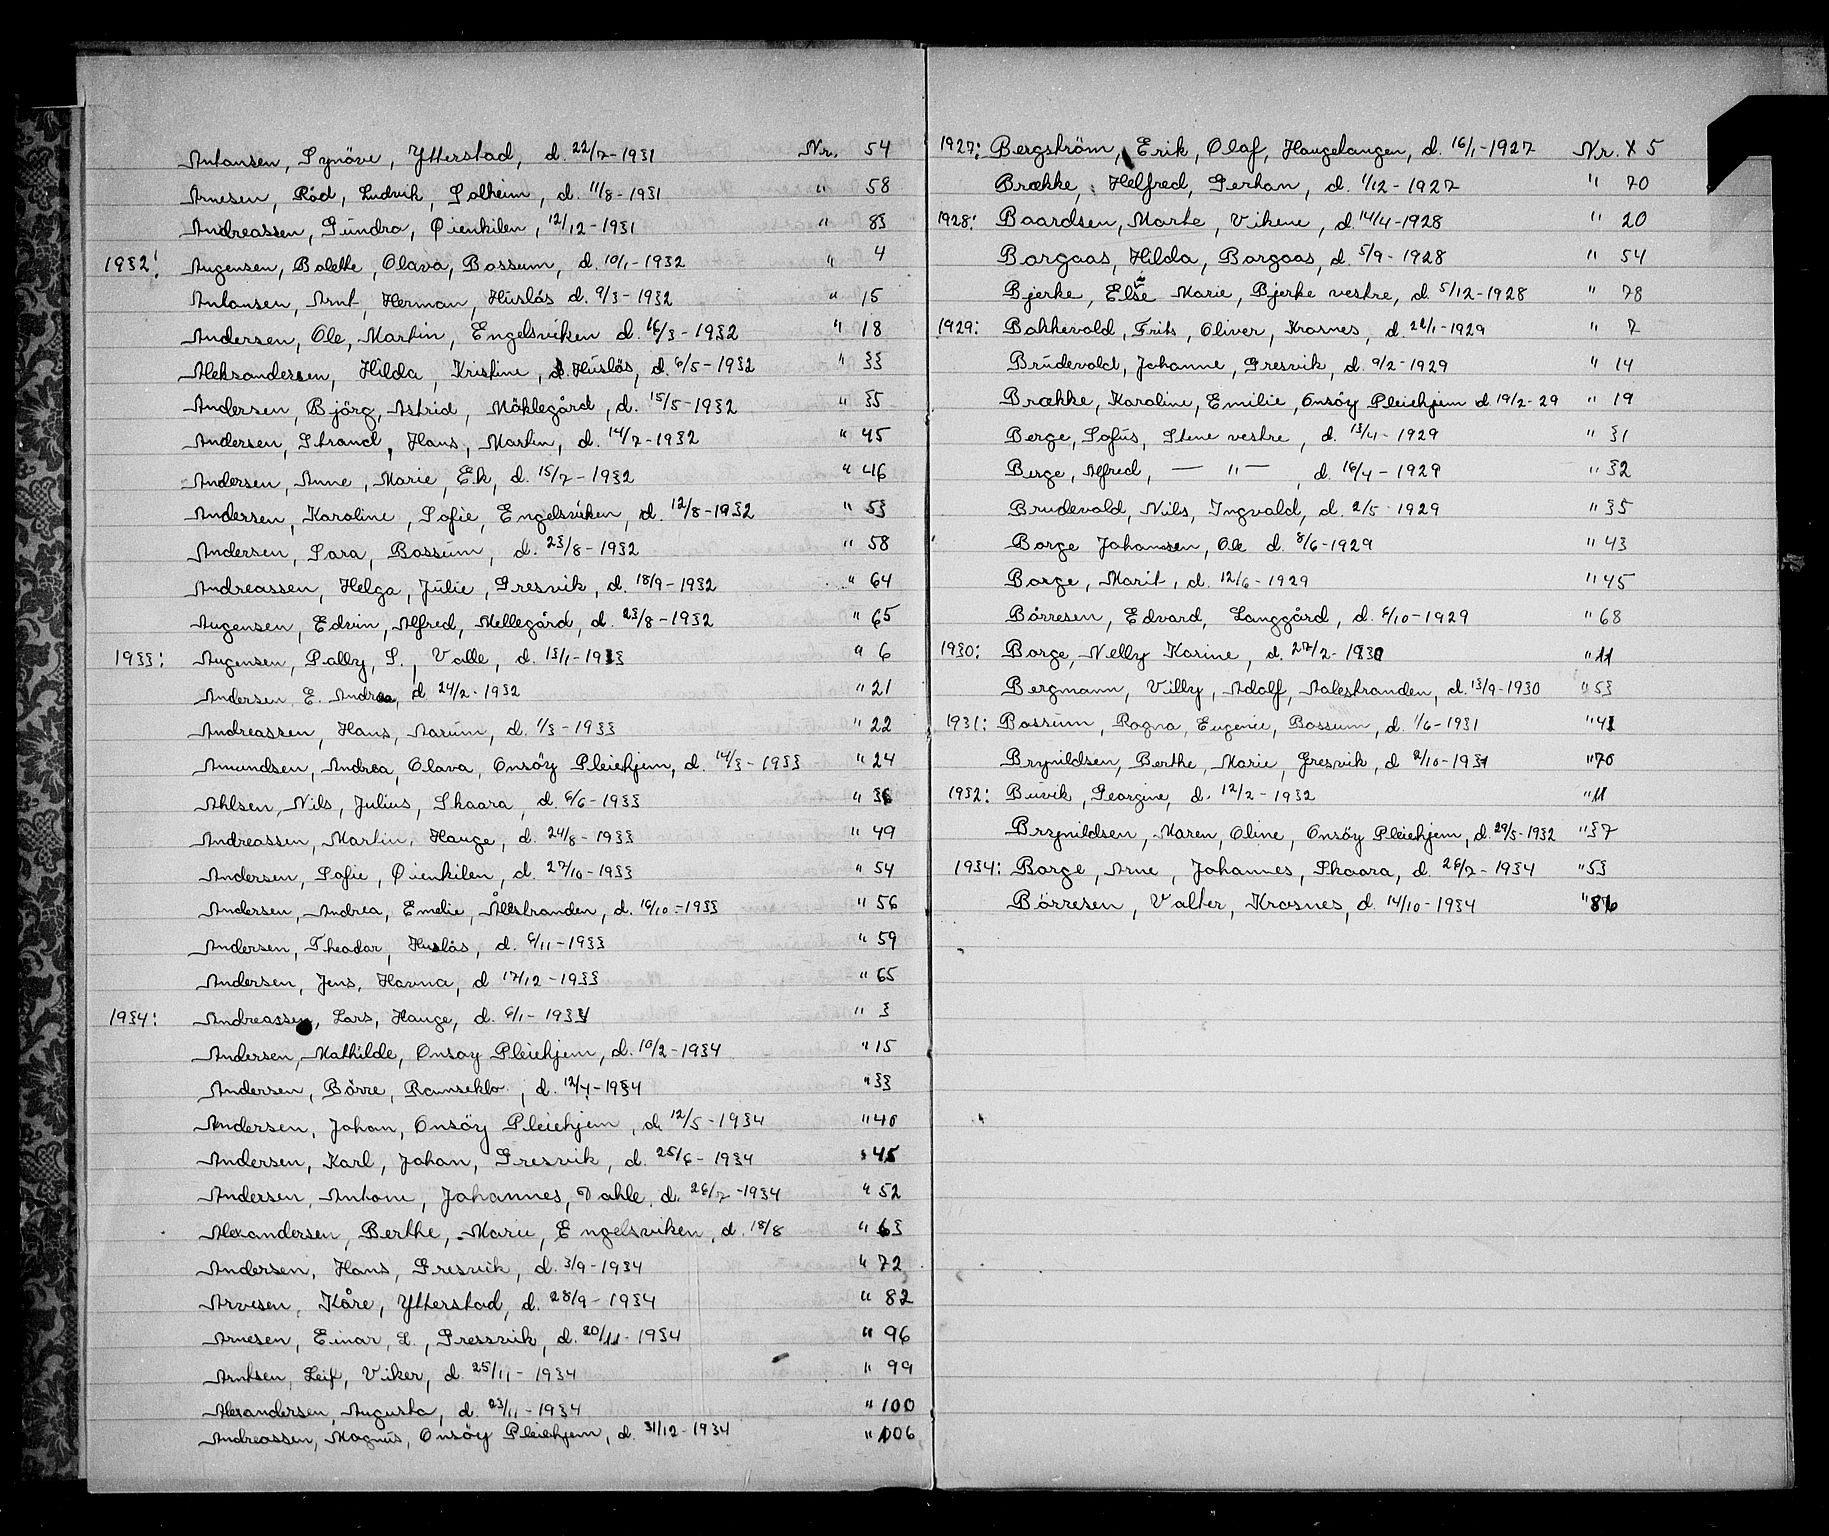 Antonsen, Synöve, Ytterstad, d. 22/7-1931 Nr. 54
Arnesen, Röd, Ludvik, Solheim, d. 11/8-1931 " 58
Andreassen, Gundra, Øienkilen, 12/12-1931 " 83
1932: Augensen, Bolette, Olava, Bossum, d. 10/1-1932 " 4
Antonsen, Arnt, Herman, Huslös d. 9/3-1932 " 15
Andersen, Ole, Martin, Engelsviken d. 16/3-1932 " 18
Aleksandersen, Hilda, Kristine, Huslös, d. 6/5-1932 " 33
Andersen, Björg, Astrid, Möklegård, d. 15/5-1932 " 35
Andersen, Strand, Hans, Martin, d. 14/7-1932 " 45
Andersen, Anne, Marie, Ek, d. 15/7-1932 " 46
Andersen, Karoline, Sofie, Engelsviken, d. 12/8-1932 " 53
Andersen, Sara, Bossum, d. 23/8-1932 " 58
Andreassen, Helga, Julie, Gresvik, d. 18/9-1932 " 64
Augensen, Edvin, Alfred, Mellegård, d. 23/8-1932 " 65
1933: Augensen, Palby, S., Valle, d. 13/1-1933 " 6
Andersen E. Andrea, d 24/2-1932 " 21
Andreassen, Hans, Aarum, d. 1/3-1933 " 22
Amundsen, Andrea, Olava, Onsöy Pleiehjem, d. 14/3-1933 " 24
Ahlsen, Nils, Julius, Skaara, d. 6/6-1933 " 36
Andreassen, Martin, Hauge, d. 24/8-1933 " 49
Andersen, Sofie, Øienkilen, d. 27/10-1933 " 54
Andersen, Andrea, Emelie, Ålestranden, d. 16/10-1933 " 56
Andersen, Theodor, Huslös, d. 6/11-1933 " 59
Andersen, Jens, Havna, d 17/12-1933 " 65
1934: Andreassen, Lars, Hauge, d. 6/1-1934 " 3
Andersen, Mathilde, Onsoy Pleiehjem, d. 10/2-1934 " 15
Andersen, Börre, Ramseklo, d. 12/4-1934 " 33
Andersen, Johan, Onsöy Pleiehjem, d. 12/5-1934 " 40
Andersen, Karl, Johan, Gresvik, d. 25/6-1934 " 45
Andersen, Antoni, Johannes, Dahle, d. 26/7-1934 " 52
Alexandersen, Berthe, Marie, Engelsviken, d. 18/8 " 63
Andersen, Hans, Gresvik, d. 3/9-1934 " 72
Arvesen, Kåre, Ytterstad, d. 28/9-1934 " 82
Arnesen, Einar, L., Gressvik, d. 20/11-1934 " 96
Arntsen, Leif, Viker, d. 25/11-1934 " 99
Alexandersen, Augusta, d. 23/11-1934 " 100
Andreassen, Magnus, Onsöy Pleiehjem, d. 31/12-1934 " 106
1927: Bergström, Erik, Olaf, Haugetangen, d. 16/1-1927 Nr. X 5
Brække, Helfred, Gerhan, d. 1/12-1927 " 70
1928: Baardsen, Marte, Vikene, d. 14/4-1928 " 20
Borgaas, Hilda, Borgaas, d. 5/9-1928 " 54
Bjerke, Else Marie, Bjerke vestre, d. 5/12-1928 " 78
1929: Bakkevold, Frits, Oliver, Krosnes, d. 22/1-1929 " 7
Brudevold, Johanne, Gresvik, d. 9/2-1929 " 14
Brække, Karoline, Emilie, Onsöy Pleiehjem d. 19/2-29 " 19
Berge, Sofus, Stene vestre, d. 13/4-1929 " 31
Berge, Alfred, — " —, d. 16/4-1929 " 32
Brudevold, Nils, Ingvald, d. 2/5-1929 " 35
Borge Johansen, Ole d. 8/6-1929 " 43
Borge, Marit, d. 12/6-1929 " 45
Börresen, Edvard, Langgård, d. 6/10-1929 " 68
1930: Borge, Nelly Karine, d. 27/2-1930 " 11
Bergmann, Villy, Adolf, Aalestranden, d. 13/9-1930 " 53
1931: Bossum, Ragna, Eugenie, Bossum, d. 1/6-1931 " 41
Brynildsen, Berthe, Marie, Gresvik, d 2/10-1931 " 70
1932: Buvik, Georgine, d. 12/2-1932 " 11
Brynildsen, Maren, Oline, Onsöy Pleiehjem, d. 29/5-1932 " 37
1934: Borge, Arne, Johannes, Skaara, d. 26/7-1934 " 53
Börresen, Valter, Krosnes, d. 14/10-1934 " 86